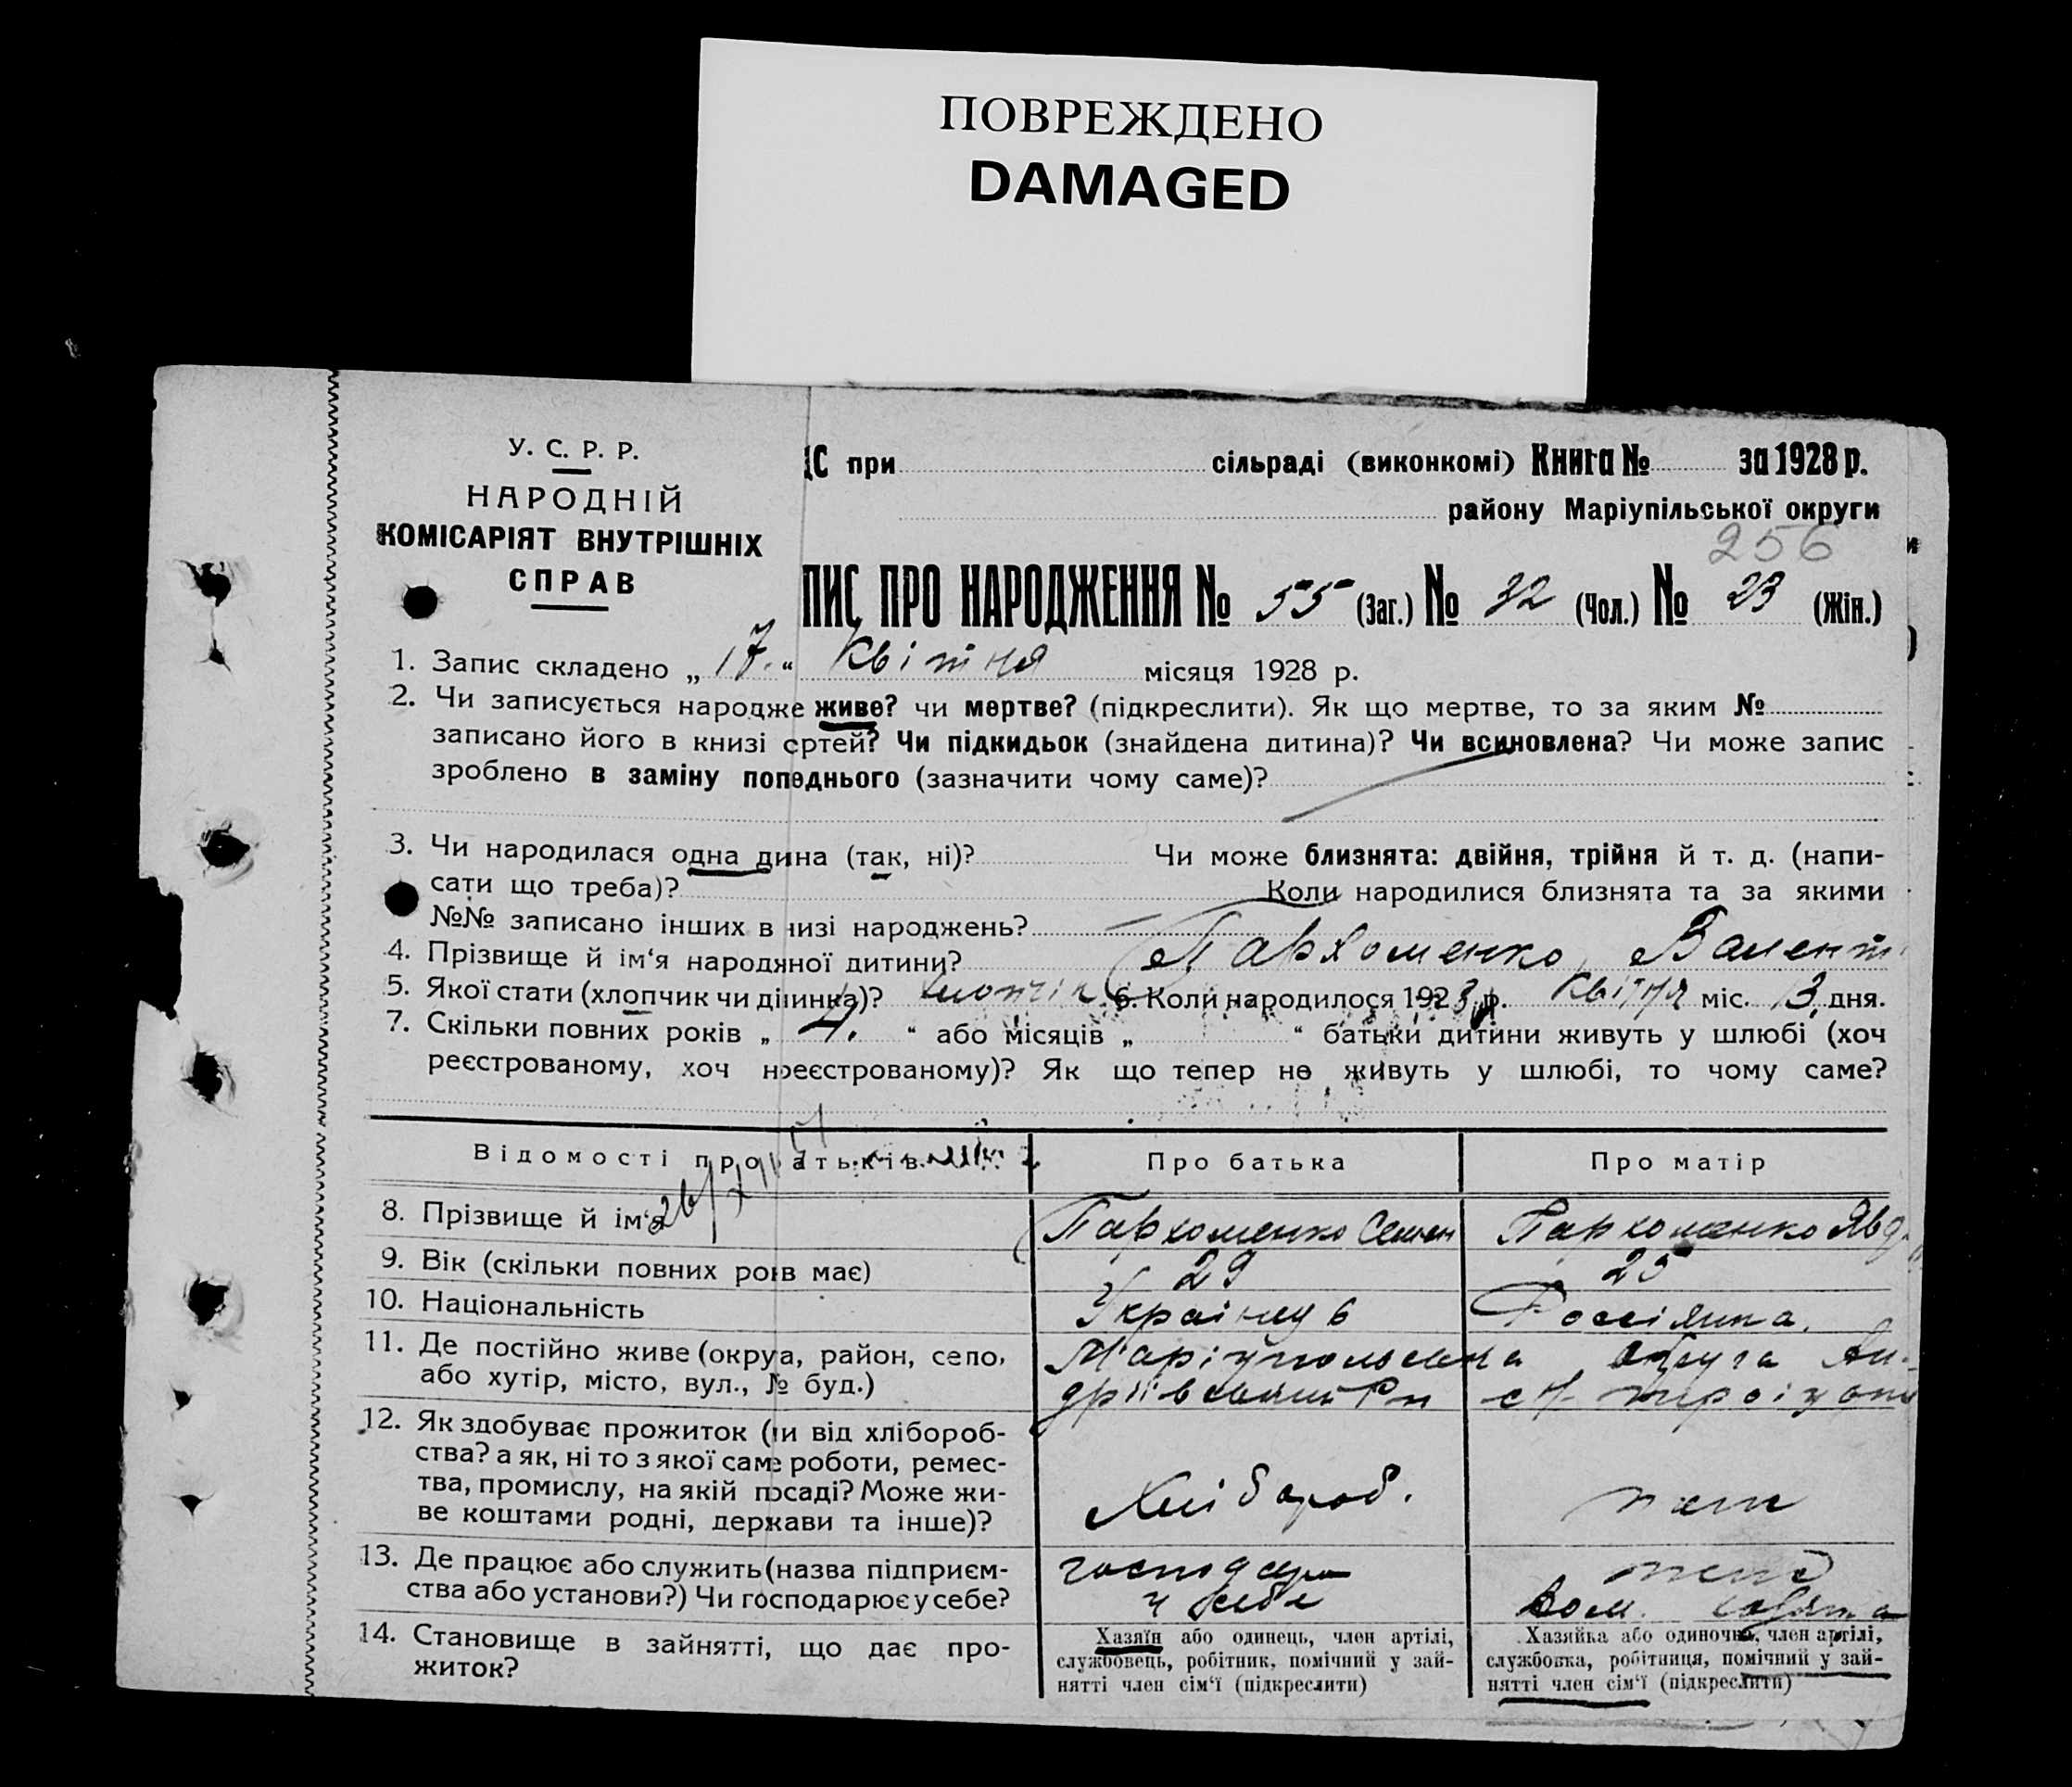 ПОВРЕЖДЕНО
DAMAGED
У. С. Р. Р.
НАРОДНІЙ
КОМІСАРІЯТ ВНУТРІШНІХ
СПРАВ
ДС при сільраді (виконкомі) Книга № за 1928 р.
району Маріупільської округи
256
ПИС ПРО НАРОДЖЕННЯ № 55 (Заг.) № 32 (Чол.) № 23 (Жін.)
1. Запис складено „ 17. “ Квітня місяця 1928 р.
2. Чи записується народже живе? чи мертве? (підкреслити). Як що мертве, то за яким №
записано його в книзі сртей? Чи підкидьок (знайдена дитина)? Чи всиновлена? Чи може запис
зроблено в заміну попеднього (зазначити чому саме)?
3. Чи народилася одна дина (так, ні)? Чи може близнята: двійня, трійня й т. д. (напи-
сати що треба)? Коли народилися близнята та за якими
№№ записано інших в низі народжень?
4. Прізвище й ім‘я народяної дитини? Пархоменко Валент
5. Якої стати (хлопчик чи дічинка)? хлопчік 6. Коли народилося 1928 р. Квітня міс. 13 дня.
7. Скільки повних років „ 4. “ або місяців „ “ батьки дитини живуть у шлюбі (хоч
реєстрованому, хоч нреєстрованому)? Як що тепер не живуть у шлюбі, то чому саме?
Відомості про батьків Про батька Про матір
8. Прізвище й ім‘я Пархоменко Семен Пархоменко Явд
9. Вік (скільки повних роів має) 29 25
10. Національність Українець Россіянка.
11. Де постійно живе (окруа, район, село, Маріупольська округа Ан-
або хутір, місто, вул., № буд.) дріївський Рн
12. Як здобуває прожиток (чи від хлібороб-
ства? а як, ні то з якої саме роботи, ремес-
тва, промислу, на якій посаді? Може жи-
ве коштами родні, держави та інше)? Хлібороб.
13. Де працює або служить (назва підприєм-
ства або установи?) Чи господарює у себе? господарю у себе
14. Становище в зайнятті, що дає про-
житок?
Хазяїн або одинець, член артілі,
службовець, робітник, помічний у зай-
нятті член сім‘ї (підкреслити)
Хазяйка або одиночка, член артілі,
службовка, робітниця, помічний у зай-
нятті член сім‘ї (підкреслити)